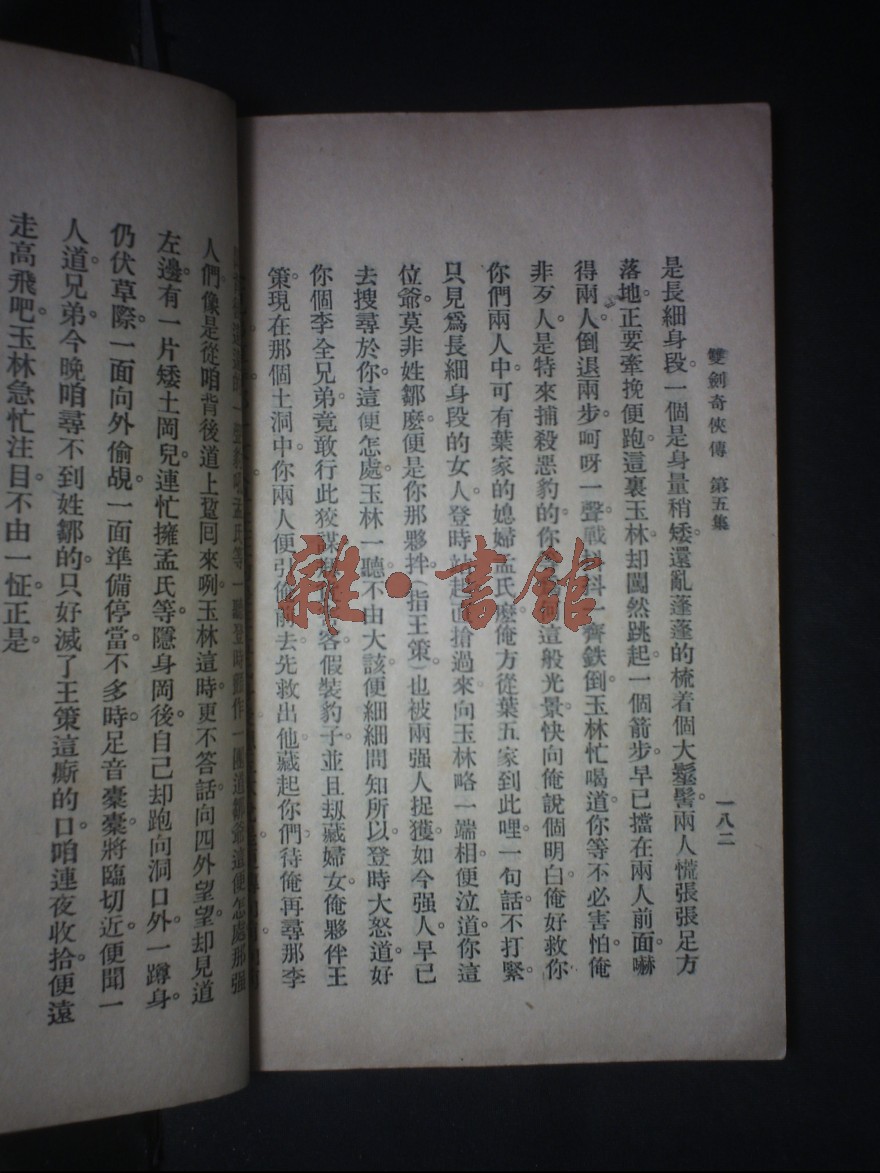 雙劍奇俠傳 第五集 一八二
是長細身段。一個是身量稍矮。還亂蓬蓬的梳着個大鬆髻。兩人慌張張足方
落地。正要牽挽便跑。這裏玉林却闖然跳起。一個箭步。早已擋在兩人前面。嚇
得兩人倒退兩步。呵呀一聲。戰抖抖一齊鉄倒。玉林忙喝道。你等不必害怕。俺
非歹人。是特來捕殺惡豹的。你這般光景。快向俺說個明白。俺好救你
你們兩人中。可有葉家的媳婦孟氏麽。俺方從葉五家到此哩。一句話不打緊。
只見爲長細身段的女人。登時起搶過來。向玉林略一端相。便泣道。你這
位爺。莫非姓鄒麽。便是你那夥拌(指王策)也被兩强人捉獲。如今强人早已
去搜尋於你。這便怎處。玉林一聽。不由大該。便細細問知所以。登時大怒道。好
你個李全兄弟。竟敢行此狡謀。客。假裝豹子。並且刼藏婦女。俺夥伴王
策。現在那個土洞中。你兩人便引俺前去。先救出他。藏起你們。待俺再尋那李
一聽。登時顫作一團道。鄒爺。這便怎處。那强
人們像是從咱背後道上踅囘來咧。玉林這時更不答話。向四外望望。却見道
左邊有一片矮土岡兒。連忙擁孟氏等隱身岡後。自己却跑向洞口外一蹲身。
仍伏草際。一面向外偷覘。一面準備停當。不多時。足音橐橐。將臨切近。便聞一
人道。兄弟。今晚咱尋不到姓鄒的。只好滅了王策這廝的口。咱連夜收拾。便遠
走高飛吧。玉林急忙注目。不由一怔。正是。
雜·書館